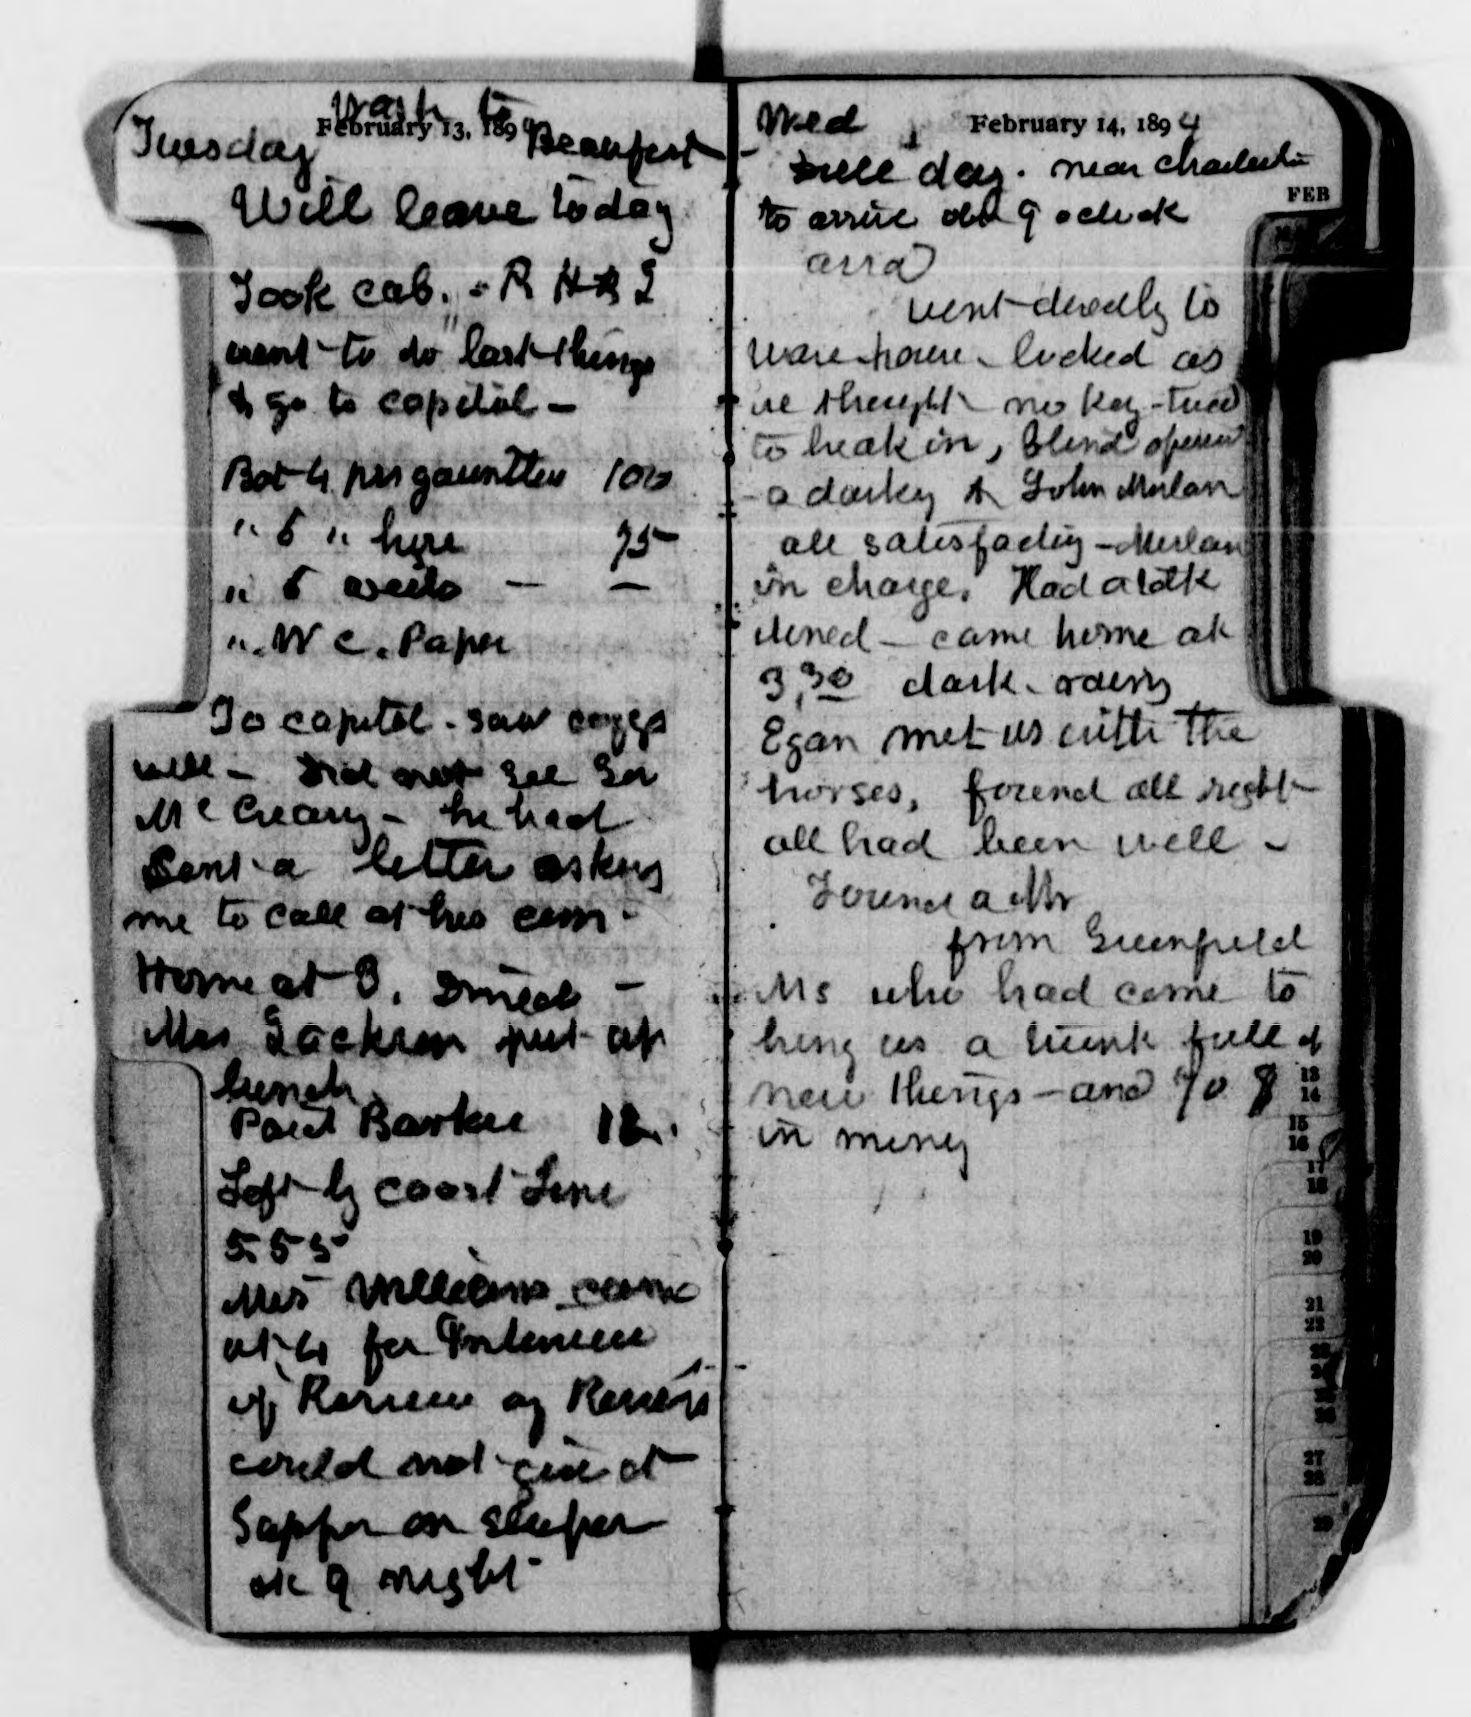 Wash to
February 13, 189
Tuesday Beaufort
Will leave today
Took cab.
went to do last things
& go to capitol -
Bot 4 prs 100
" 6 " here 75
" 6 — —
" W C. Paper
To capitol - saw
well - Did not see
McCreary - he had
sent a letter asking
me to call at his
Home at 3. Dined -
Mrs Jackson put up
lunch
Paid Barker 12.
Left by coast Line
5.55
Mrs Williams came
at 4 for
of
could not give it
Supper on sleeper
at 9 night
Wed February 14, 1894
day. near Charleston
FEB
to arrive 9 oclock
went directly to
ware house - locked as
we thought - no key - tried
to break in, Blind opened
a darkey John
all satisfactory -
in charge. Had a talk
dined - came home at
3.30 dark - rainy
Egan met us with the
horses, found all right
all had been well -
Found a Mr
from Greenfield
Ms who had come to
bring us a trunk full of
new things - and 70 $
in money
13
14
15
16
17
18
19
20
21
22
23
24
25
26
27
28
29